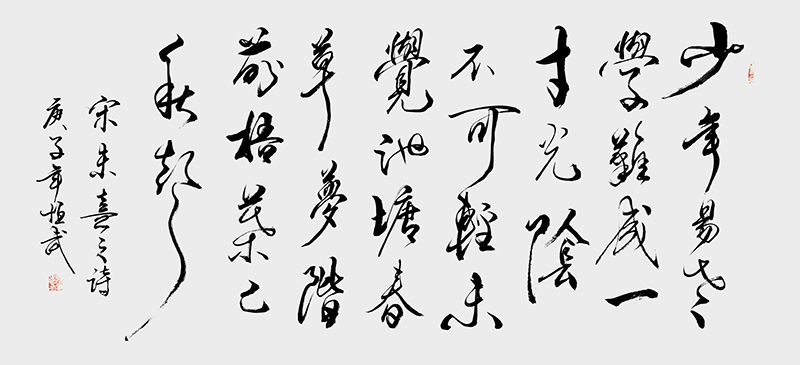 少年易老
學難成一
寸光陰
不可輕未
覺池塘春
草夢階
前梧葉已
秋聲
宋朱熹之詩
庚子年恒武